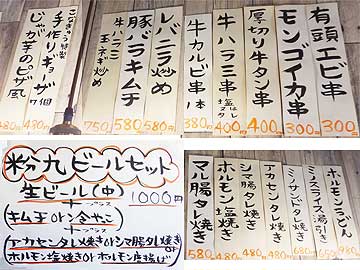 有頭エビ串
300
モンゴイカ串
300
厚切り牛タン串
400
牛ハラミ串
塩
400
牛カルビ串
1本
380
レバニラ炒め
580円
豚バラキムチ
580
牛ハラミ
玉ネギ炒め
750
こなきゅう特製
手作りギョーザ
480円
じゃが芋のピザ風
480円
粉九ビールセット
生ビール(中)
1000円
+プラス
(キム玉 or 冷やっこ)
+プラス
(アカセンタレ焼き or シマ腸タレ焼き or
ホルモン塩焼き or ホルモン唐揚げ)
ホルモンちゃん
980
ミノスライス湯引き
650
ミノサンドタレ焼き
680
アカセンタレ焼き
580
シマ腸タレ焼き
580
ホルモン塩焼き
580
マル腸タレ焼き
580